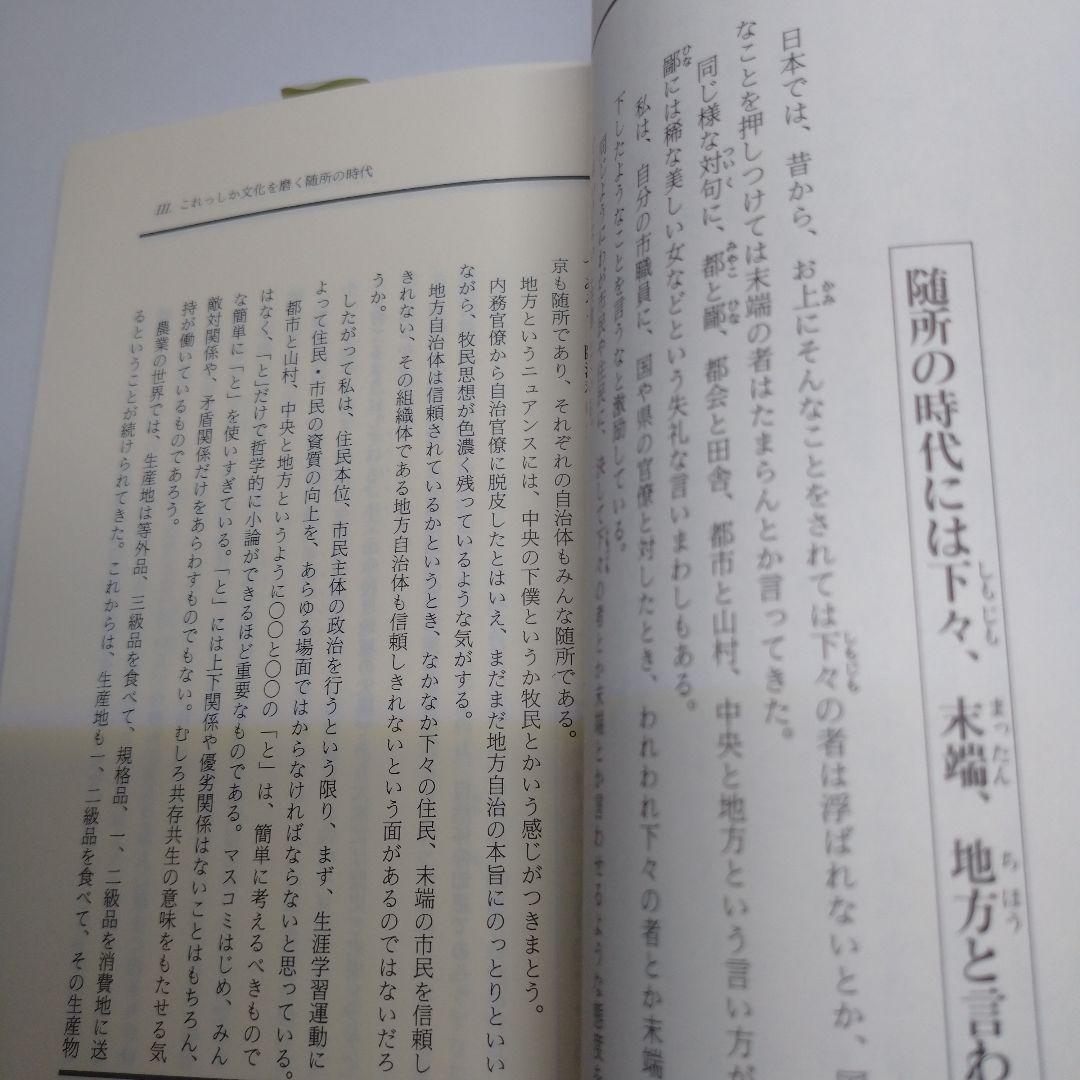 随所の時代には下々、末端、地方と言わ
日本では、昔から、お上にそんなことをされては下々の者は浮ばれないとか、
なことを押しつけては末端の者はたまらんとか言ってきた。
同じ様な対句に、都と鄙、都会と田舎、都市と山村、中央と地方という言い方が
鄙には稀な美しい女などという失礼な言いまわしもある。
私は、自分の市職員に、国や県の官僚と対したとき、われわれ下々の者とか末端
下したようなことを言うなと激励している。
同じようにわが市民や住民に、決して下々の者とか末端とか言わせるような態度を
III. これっしか文化を磨く随所の時代
京も随所であり、それぞれの自治体もみんな随所である。
地方というニュアンスには、中央の下僕というか牧民とかいう感じがつきまとう。
内務官僚から自治官僚に脱皮したとはいえ、まだまだ地方自治の本旨にのっとりといい
ながら、牧民思想が色濃く残っているような気がする。
地方自治体は信頼されているかというとき、なかなか下々の住民、末端の市民を信頼し
きれない、その組織体である地方自治体も信頼しきれないという面があるのではないだろ
うか。
したがって私は、住民本位、市民主体の政治を行うという限り、まず、生涯学習運動に
よって住民・市民の資質の向上を、あらゆる場面ではからなければならないと思っている。
都市と山村、中央と地方というように〇〇と〇〇の「と」は、簡単に考えるべきもので
はなく、「と」だけで哲学的に小論ができるほど重要なものである。マスコミはじめ、みん
な簡単に「と」を使いすぎている。「と」には上下関係や優劣関係はないことはもちろん、
敵対関係や、矛盾関係だけをあらわすものでもない。むしろ共存共生の意味をもたせる気
持が働いているものであろう。
農業の世界では、生産地は等外品、三級品を食べて、規格品、一、二級品を消費地に送
るということが続けられてきた。これからは、生産地も一、二級品を食べて、その生産物